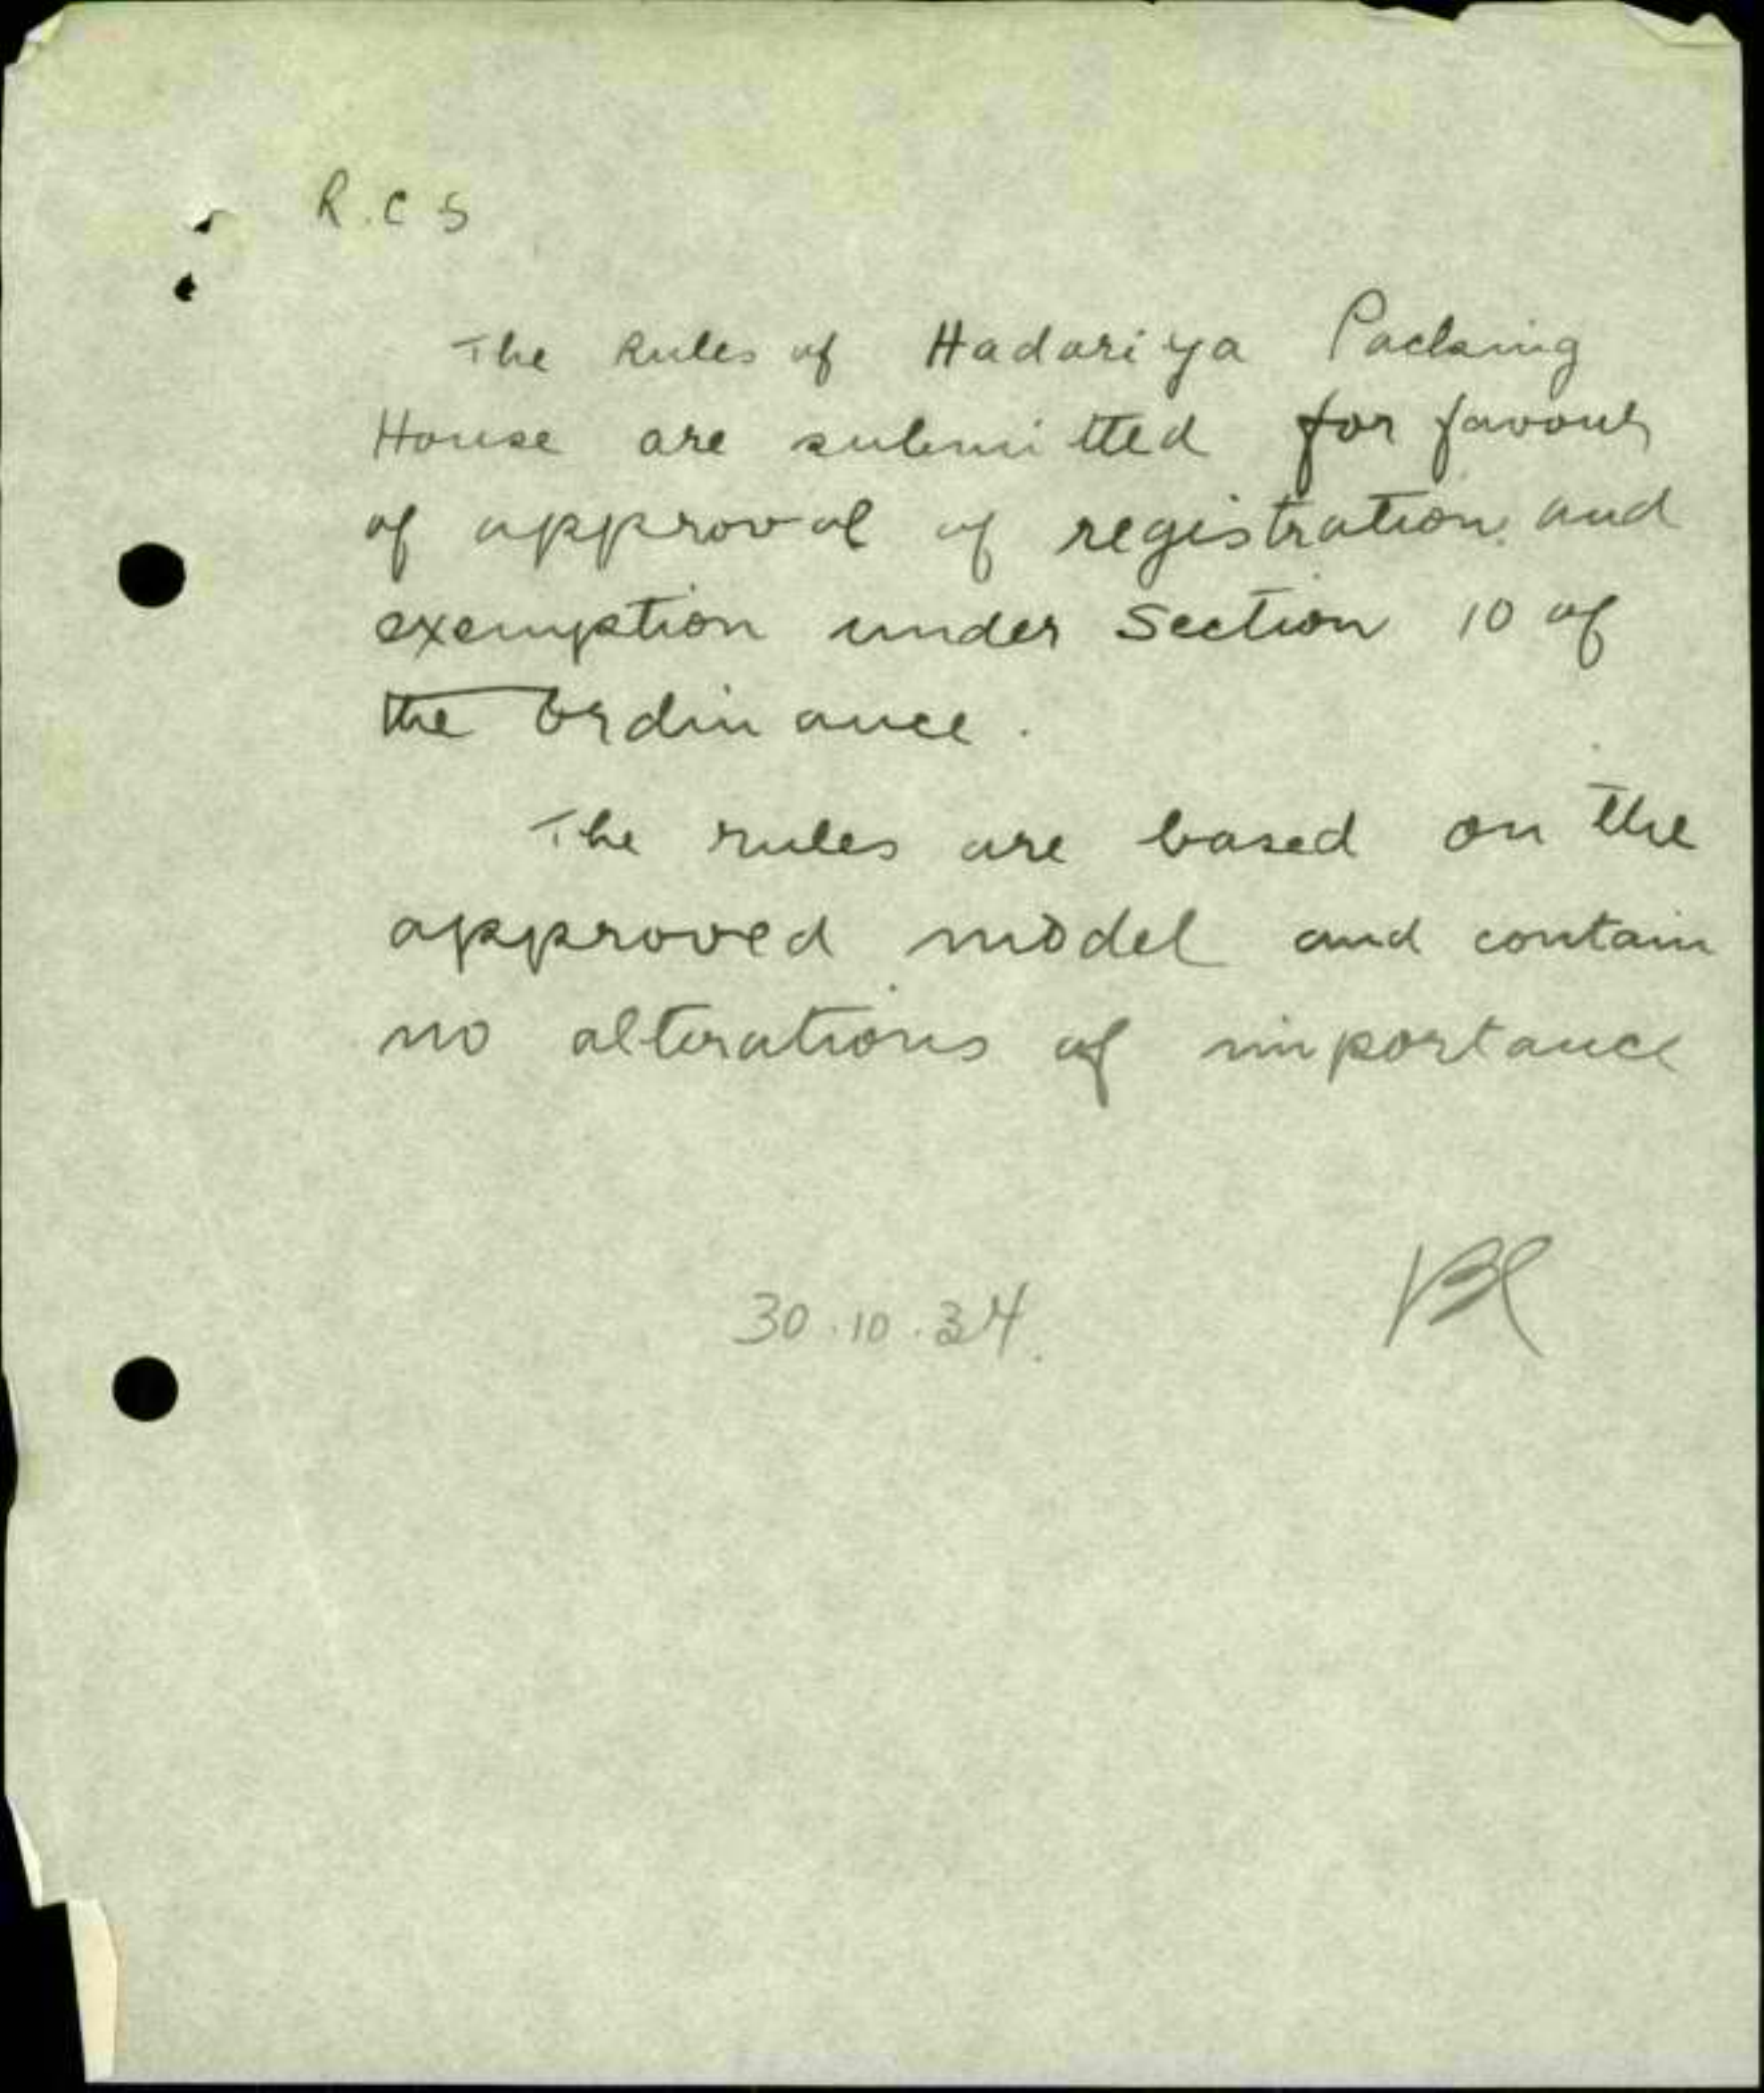 R.C S
The Rules of Hadariya Packing
House are submitted for favour
of approval of registration and
exemption under Section 10 of
the Ordinance.
The rules are based on the
approved model and contain
no alterations of importance
30.10.34.